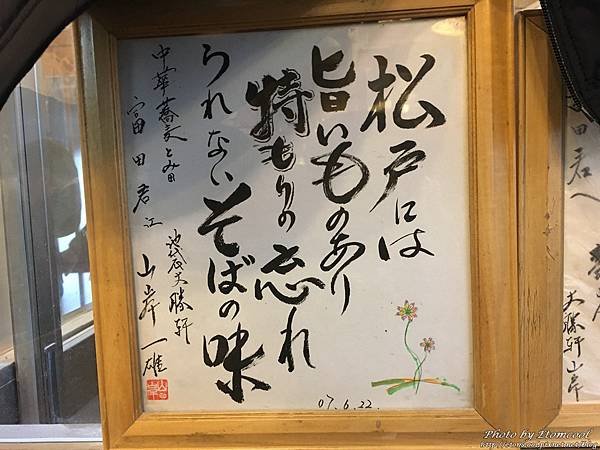 松戸には
旨いものあり
特もりの忘れ
られないそばの味
中華蕎麦とみ田
富田君江
池袋大勝軒
山岸一雄
07.6.22.
富田君へ
大勝軒山岸
Photo by Itomcool